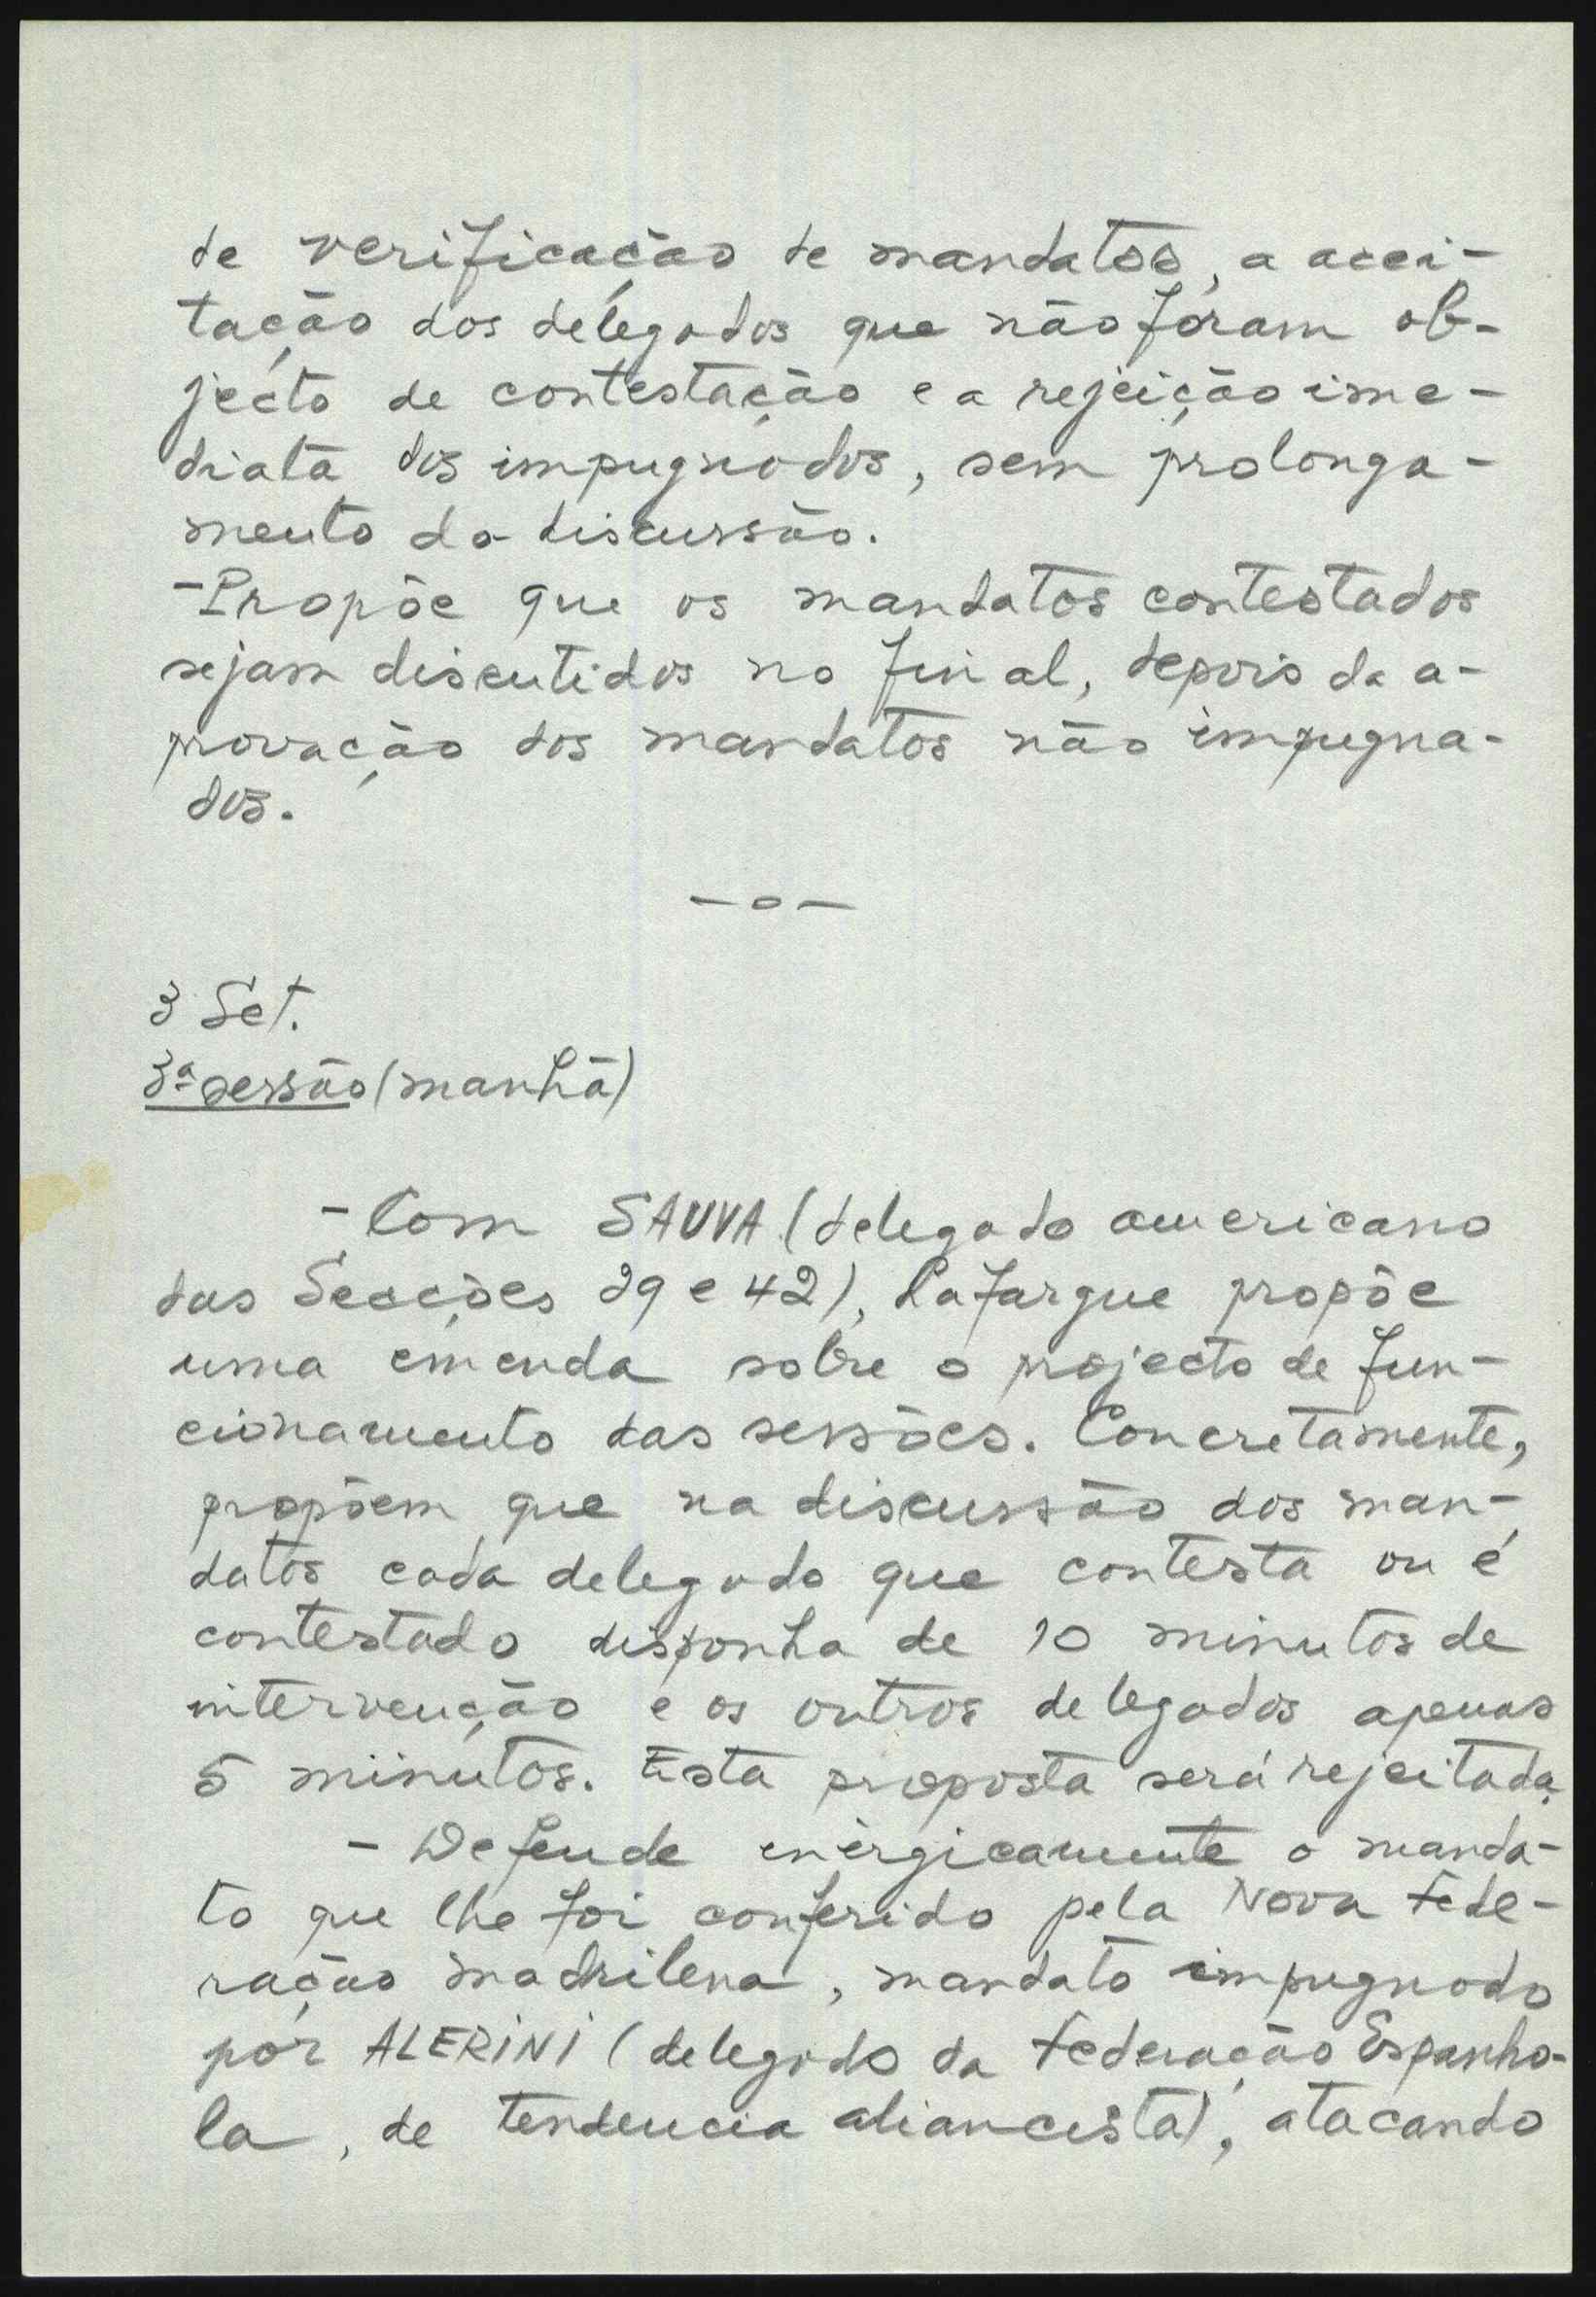 de verificação de mandatos, a acei-
tação dos delegados que não foram ob-
jecto de contestação e a rejeição ime-
diata dos impugnados, sem prolonga-
mento da discussão.
- Propõe que os mandatos contestados
sejam discutidos no final, depois da a-
provação dos mandatos não impugna-
dos.
— o —
3 Set.
3ª sessão (manhã)
- Com SAUVA (delegado americano
das Secções 29 e 42), Lafargue propõe
uma emenda sobre o projecto de fun-
cionamento das sessões. Concretamente,
propõem que na discussão dos man-
datos cada delegado que contesta ou é
contestado disponha de 10 minutos de
intervenção e os outros delegados apenas
5 minutos. Esta proposta será rejeitada.
- Defende enèrgicamente o manda-
to que lhe foi conferido pela Nova Fede-
ração madrilena, mandato impugnado
por ALERINI (delegado da Federação Espanho-
la, de tendencia aliancista), atacando